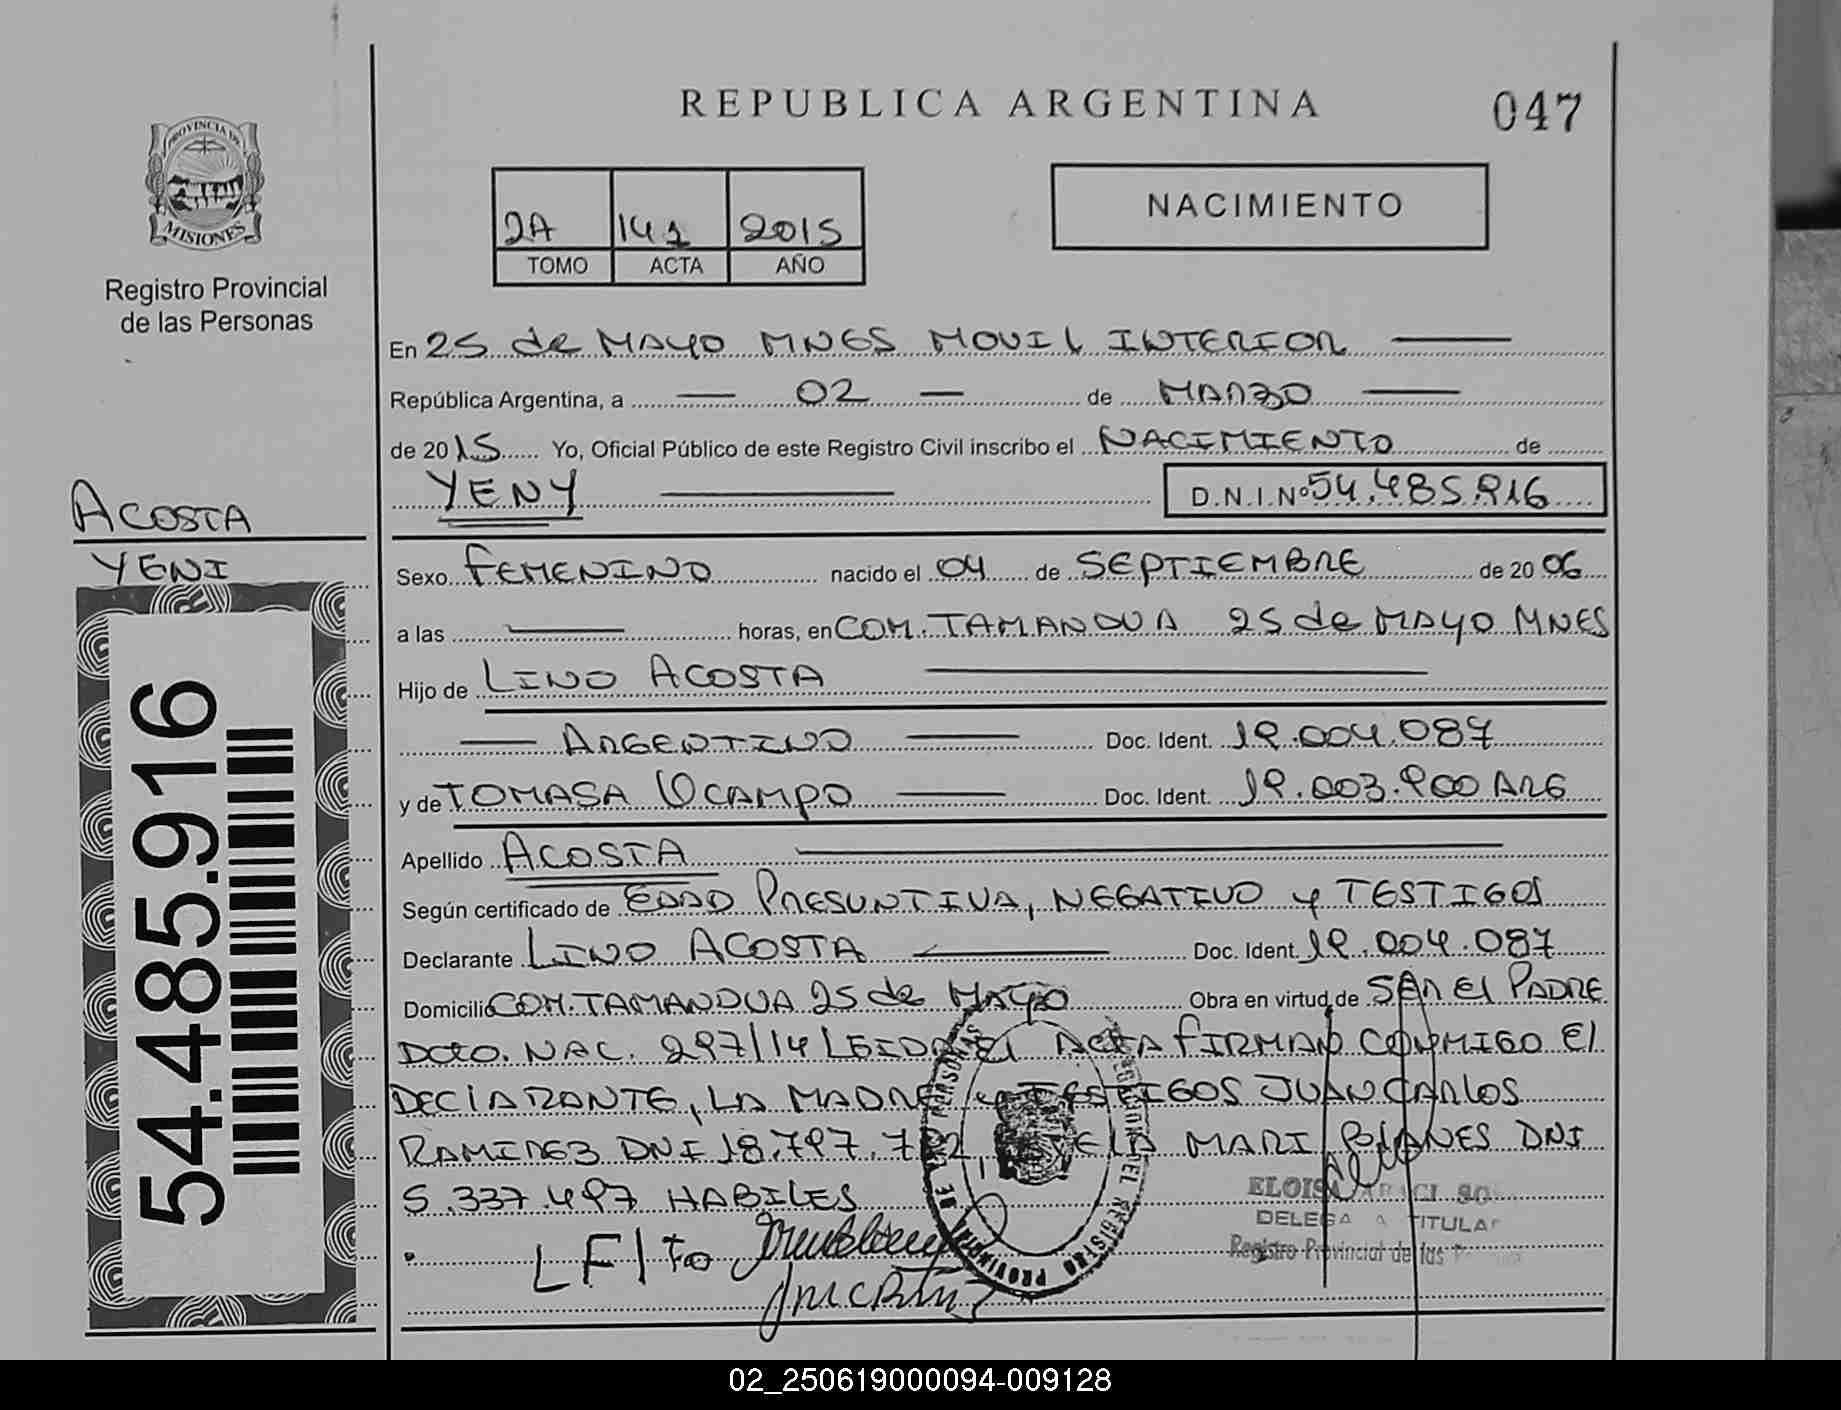 REPUBLICA ARGENTINA
047
PROVINCIA DE
MISIONES
Registro Provincial
de las Personas
2A 141 2015
TOMO ACTA AÑO
NACIMIENTO
En 25 de MAYO MNES MOVIL INTERIOR
República Argentina, a 02 de MARZO
de 2015 Yo, Oficial Público de este Registro Civil inscribo el NACIMIENTO de
YENY D.N.I.Nº 54.485.916
ACOSTA
YENI
54.485.916
Sexo FEMENINO nacido el 04 de SEPTIEMBRE de 20 06
a las horas, en COM. TAMANDUA 25 de MAYO MNES
Hijo de LINO ACOSTA
ARGENTINO Doc. Ident. 19.004.087
y de TOMASA OCAMPO Doc. Ident. 19.003.900 ARG
Apellido ACOSTA
Según certificado de EDAD PRESUNTIVA, NEGATIVO y TESTIGOS
Declarante LINO ACOSTA Doc. Ident. 19.004.087
Domicilio COM. TAMANDUA 25 de MAYO Obra en virtud de SER El PADRE
DCTO. NAC. 297/14 LEIDA El ACTA FIRMAN CONMIGO El
DEClARANTE, LA MADRE y TESTIGOS JUAN CARlOS
RAMIREZ DNI 18.797. MARI DNI
5.337.497 HABILES
REGISTRO PROVINCIAL DE LAS PERSONAS
ELOISA
DELEGADA TITULAR
Registro Provincial de las
02_250619000094-009128